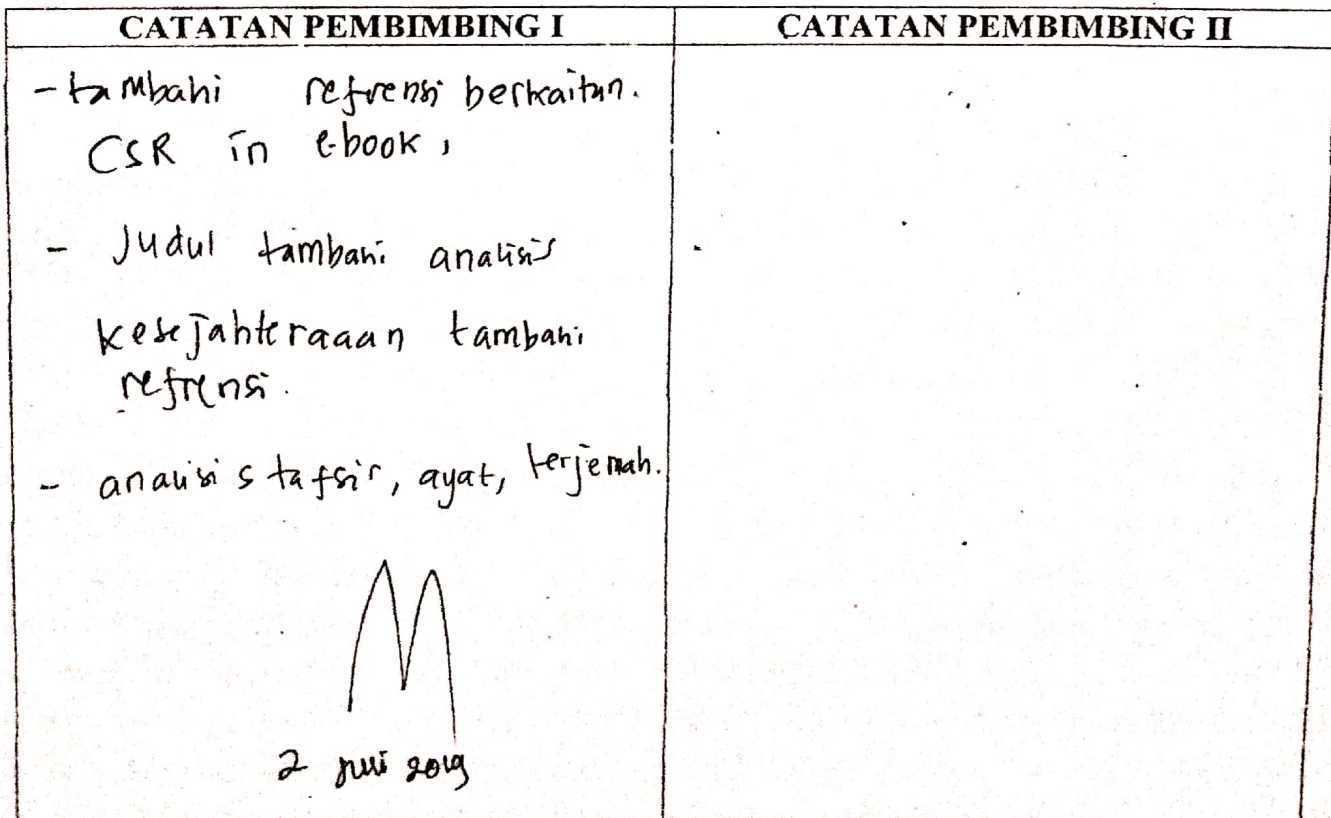 CATATAN PEMBIMBING I
CATATAN PEMBIMBING II
- tambahi refrensi berkaitan.
CSR in e-book,
- Judul tambahi analisis
kesejahteraaan tambahi
refrensi.
- analisis tafsir, ayat, terjemah.
2 2019